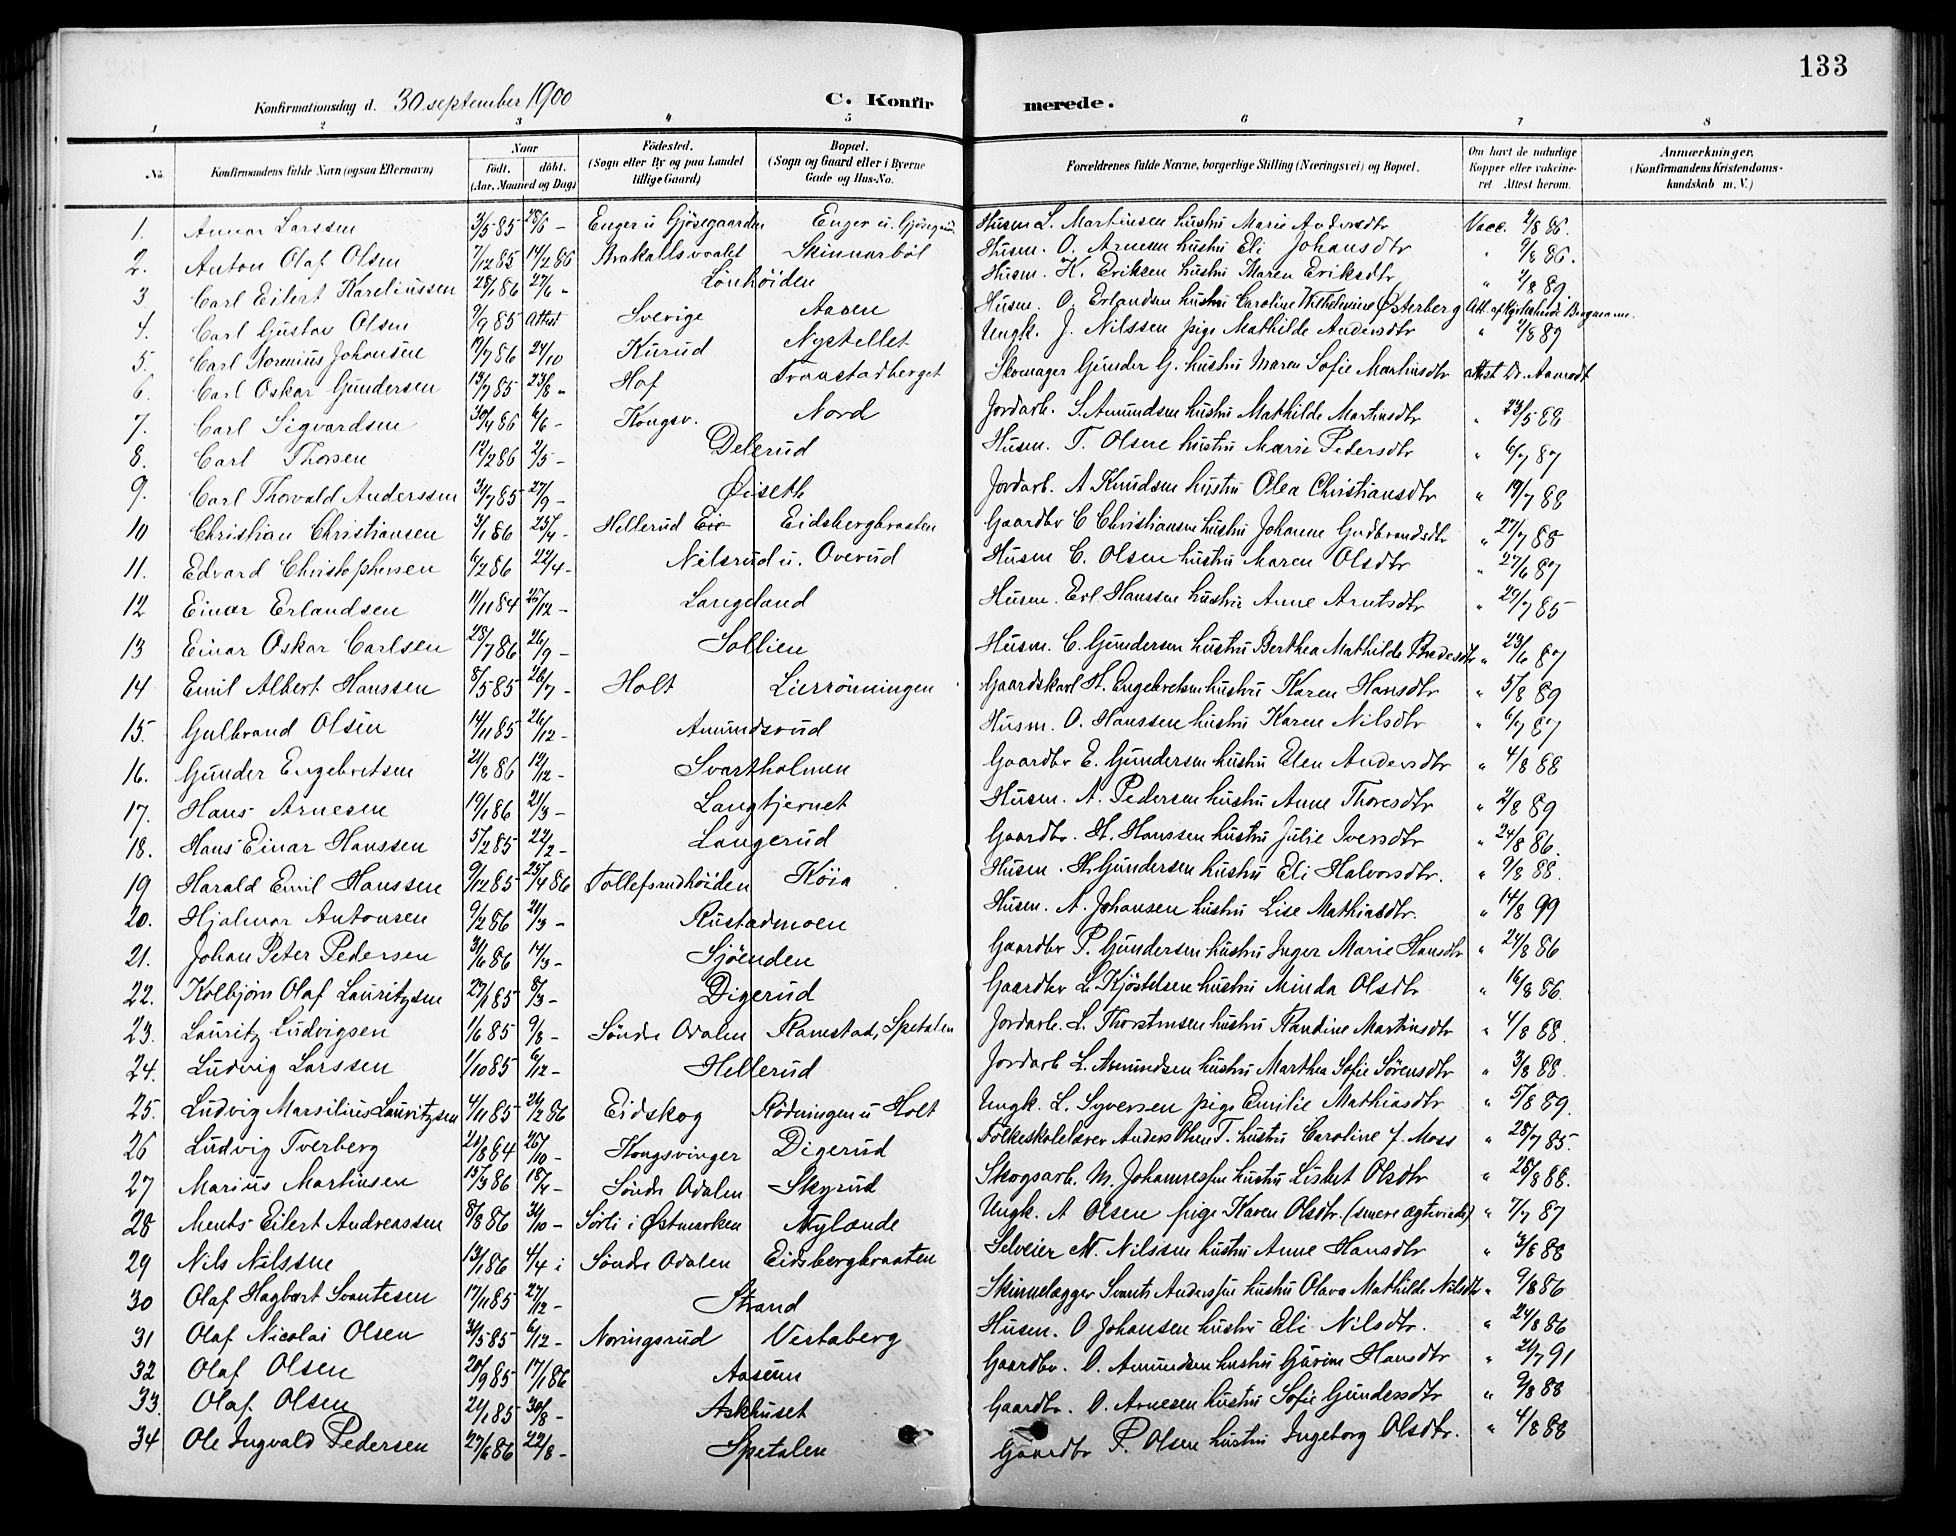 133
Konfirmationsdag d. 30 september 1900 C. Konfirmerede.
1 2 3 4 5 6 7 8
No. Konfirmandens fulde Navn (ogsaa Efternavn) Naar født. døbt. (Aar, Maaned og Dag) Fødested. (Sogn eller By og paa Landet tillige Gaard) Bopæl. (Sogn og Gaard eller i Byerne Gade og Hus-No. Forældrenes fulde Navne, borgerlige Stilling (Næringsvei) og Bopæl. Om havt de naturlige Kopper eller vakcineret. Attest herom. Anmærkninger. (Konfirmandens Kristendomskundskab m. V.)
1. Larssen 3/5 85 28/6 - Enger u Gjösegaarden Enger u. Husm L. Martinsen hustru Marie Andersdtr Vacc. 2/8 86.
2. Anton Olaf Olsen 7/12 85 14/2 86 Skinnarböl Husm. O. Arnesen hustru Eli Johansdtr " 9/8 86.
3 Carl Eilert Kareliussen 28/1 86 27/6 " Lönhöiden Husm. K. Eriksen hustru Maren Eriksdtr " 2/8 89.
4. Carl Gustav Olsen 9/9 85 Attest Sverige Aasen Husm. O. Erlandsen hustru Caroline Wilhelmine Österberg Att. af
5. Carl Johansen 19/7 86 24/10 Kurud Nystellet Ungk. J. Nilssen pige Mathilde Andersdtr " 2/8 89
6. Carl Oskar Gundersen 13/7 85 23/8 " Hof Skomager Gunder G. hustru Maren Sofie Martinsdtr attest Dr. Aamodt
7. Carl Sigvardsen 30/4 86 6/6 - Kongsv. Nord Jordarb. S. Amundsen hustru Mathilde Martinsdtr " 23/5 88
8. Carl Thorsen 12/2 86 2/5 - Delerud Husm. T. Olsen hustru Marie Pedersdtr " 6/7 87
9. Carl Thorvald Anderssen 31/7 85 27/9 - Öiseth Jordarb. A Knudsen hustru Olea Christiansdtr " 19/7 88
10 Christian Christiansen 3/1 86 25/4 - Hellerud Eidsbergbraaten Gaardbr C Christiansen hustru Johanne Gudbrandsdtr " 27/7 88
11. Edvard Christophersen 6/2 86 22/4 - Nilsrud u. Overud Husm C. Olsen hustru Maren Olsdtr " 27/6 87
12 Einar Erlandsen 11/11 84 25/12 - Langeland Husm. Erl. Hanssen hustru Anne Arntsdtr " 29/7 85
13 Einar Oskar Carlsen 28/7 86 26/9 - Sollien Husm. C. Gundersen hustru Berthea Mathilde " 23/6 87
14 Emil Albert Hanssen 8/5 85 26/7 - Holt Lierrönningen Gaardskarl H. Engebretsen hustru Karen Hansdtr " 5/8 89
15. Gulbrand Olsen 14/11 85 26/12 - Amundsrud Husm. O. Hanssen hustru Karen Nilsdtr " 6/7 87
16. Gunder Engebretsen 21/8 86 12/12 - Svartholmen Gaardbr E. Gundersen hustru Elen Andersdtr " 4/8 88
17. Hans Arnesen 19/1 86 21/3 - Langtjernet Husm. A. Pedersen hustru Anne Thoresdtr " 2/8 89
18. Hans Einar Hanssen 5/2 85 22/2 - Langerud Gaardbr. H. Hanssen hustru Julie Iversdtr " 24/8 86.
19 Harald Emil Hanssen 9/12 85 25/4 86 Tollefsrudhöiden Köia Husm. H. Gundersen hustru Eli Halvorsdtr. " 9/8 88.
20. Hjalmar Antonsen 9/2 86 21/3 - Rustadmoen Husm. A. Johansen hustru Lise Mathiasdtr. " 14/8 99
21. Johan Peter Pedersen 31/6 86 14/3 - Sjöenden Gaardbr P. Gundersen hustru Inger Marie Hansdtr " 24/8 86
22. Kolbjörn Olaf Lauritzsen 27/1 85 8/3 - Digerud Gaardbr L. Kjöstelsen hustru Minda Olsdtr " 16/8 86.
23. Lauritz Ludvigsen 1/6 85 9/8 - Söndre Odalen Ramstad, Spetalen Jordarb. L. Thorstensen hustru Randine Martinsdtr " 4/8 88.
24. Ludvig Larssen 1/10 85 6/12 - Hellerud Jordarb L. Amundsen hustru Marthea Sofie Sörensdtr " 3/8 88.
25. Ludvig Marsilius Lauritzsen 4/11 85 21/2 86 Eidskog Rödningen u Holt Ungk. L. Syversen pige Emilie Mathiasdtr " 5/8 89.
26 Ludvig Tverberg 21/8 84 26/10 - Kongsvinger Digerud Folkeskolelærer Anders Olsen T. hustru Caroline f. Moss " 28/7 85.
27 Marius Martinsen 15/3 86 18/4 - Söndre Odalen Skyrud Skogsarb. M. Johannessen hustru Lisbet Olsdtr " 28/8 88.
28 Ments Eilert Andreassen 8/8 86 31/10 - Sörli i Östmarken Nylænde Ungk. A Olsen pige Karen Olsdtr. (senere ægteviede) " 7/7 87
29 Nils Nilssen 13/1 86 4/4 i Söndre Odalen Eidsbergbraaten Selveier N. Nilssen hustru Anne Hansdtr " 3/8 88
30 Olaf Hagbart Svantesen 17/11 85 27/12 - Strand Skinnelægger Svante Anderssen hustru Olava Mathilde Nilsdtr " 9/8 86
31 Olaf Nicolai Olsen 31/5 85 6/12 - Noringsrud Vestaberg Husm. O Johansen hustru Eli Nilsdtr. " 24/8 86
32 Olaf Olsen 20/9 85 17/1 86 Aaseun Gaardbr. O. Amundsen hustru Hansdtr " 21/7 91
33. Olaf Olsen 21/1 85 30/8 - Askhuset Gaardbr. O. Arnesen hustru Sofie Gundersdtr " 9/8 88
34 Ole Ingvald Pedersen 27/6 86 22/8 - Spetalen Gaardbr P. Olsen hustru Ingeborg Olsdtr. " 4/8 88